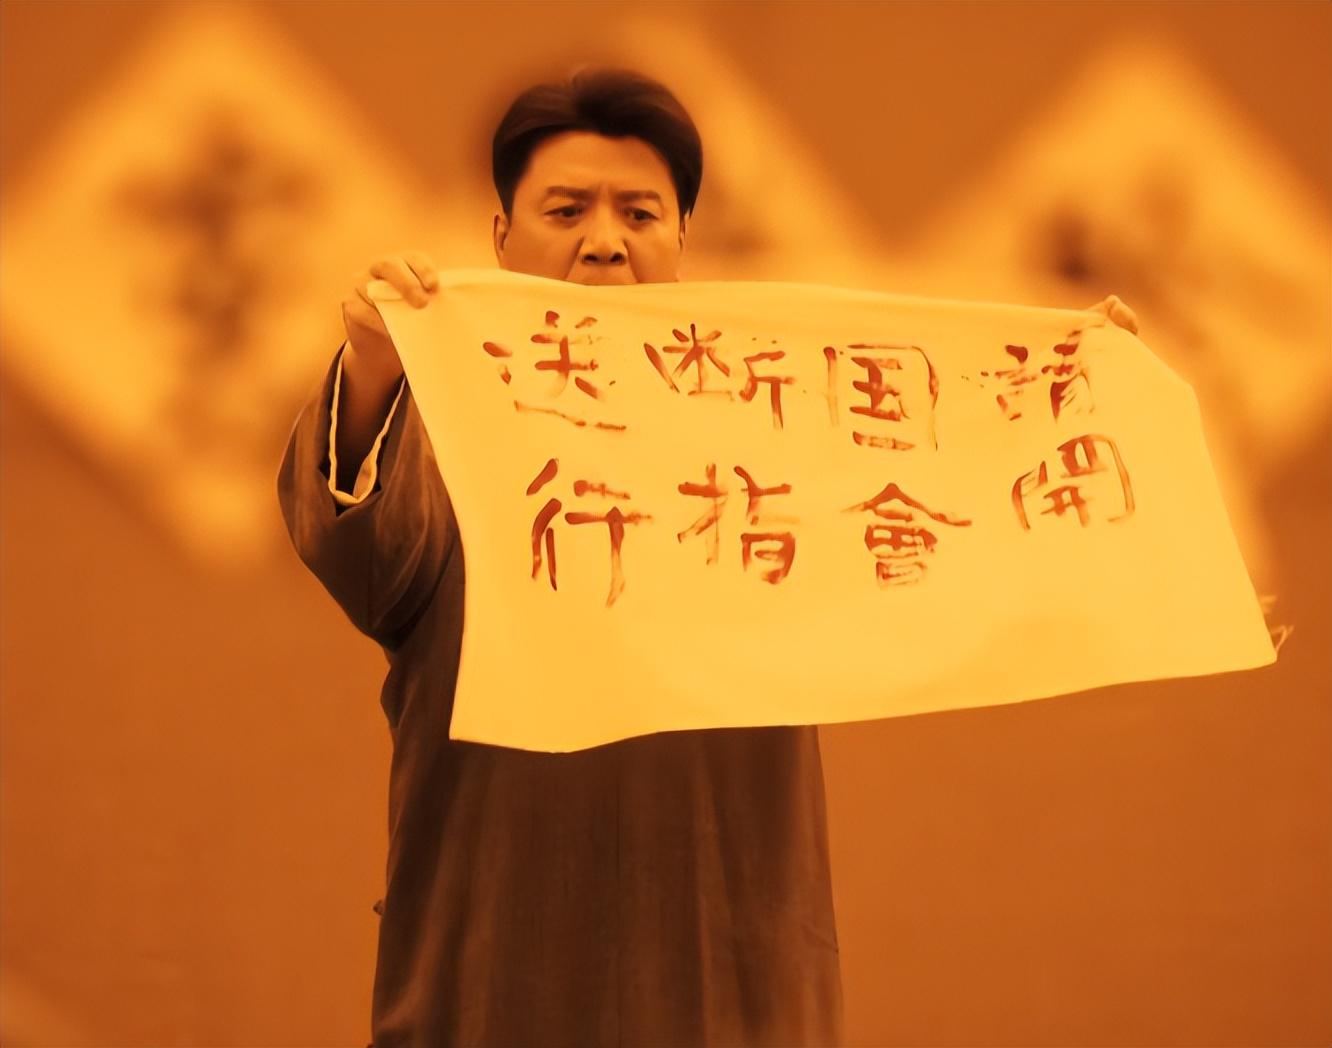 請開
国會
断指
送行